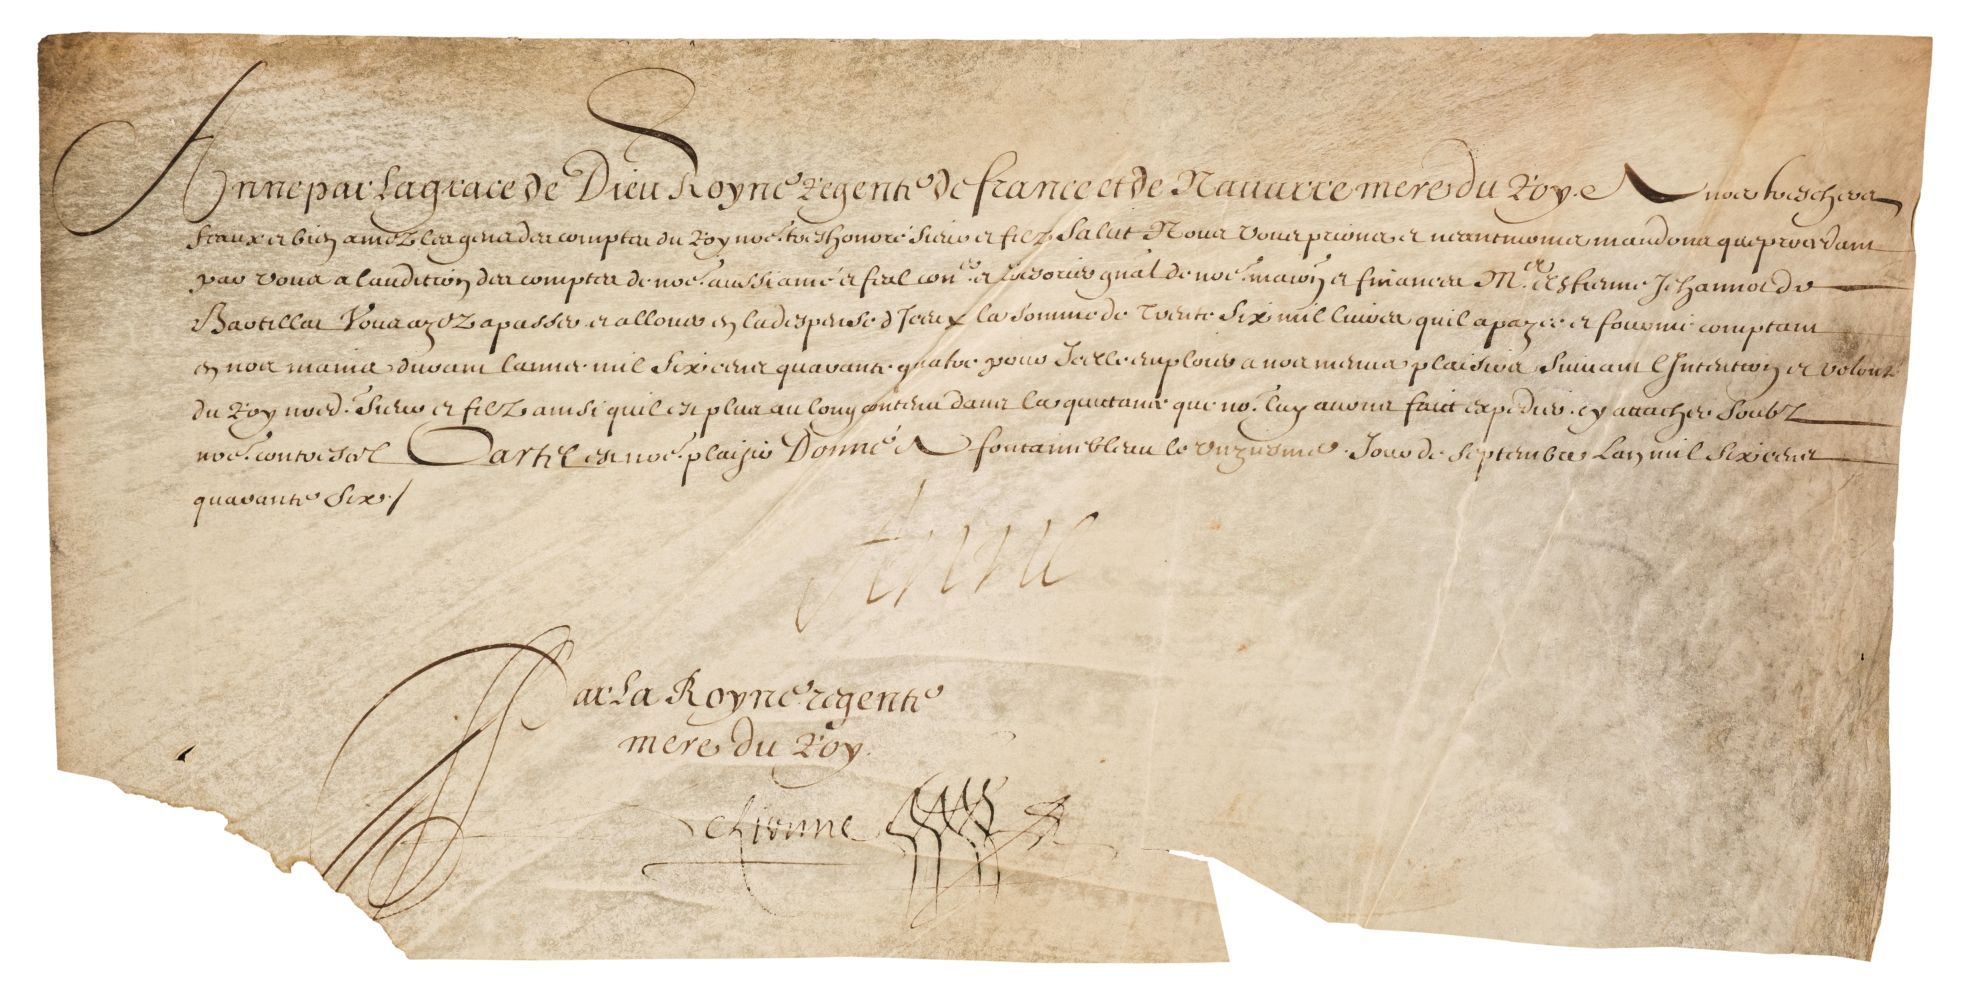 Anne par La grace de Dieu Royne regente de france et de Nauarre mere du Roy. A nos tres chers
feaux et bien amez les gens des comptes du Roy nre. tres honoré sieur et filz Salut Nous vous prions et neantmoins mandons que procedant
par vous a laudition des comptes de nre. aussi amé et feal coner. et tresorier gnal de nre. maison et finances Me. Estienne Jehannot de
Bartillat Vous ayez a passer et allouer en la despense d'Iceux la somme de Trente Six mil liures quil a payée et fourni comptant
en nos mains durant lannee mil Six cens quarante quatre pour Icelle emploier a nos menus plaisirs Suiuant l'Intention et volonté
du Roy nred. Sieur et filz ainsi quil est plus au long contenu dans la quictance que no9. luy auons faict expedier cy attachee Soubz
nre. contrescel Car tel est nre. plaisir Donné A fontainebleau le unziesme Jour de Septembre Lan mil six cens
quarante six ./
Anne
Par La Royne regente
mere du Roy.
De Lionne